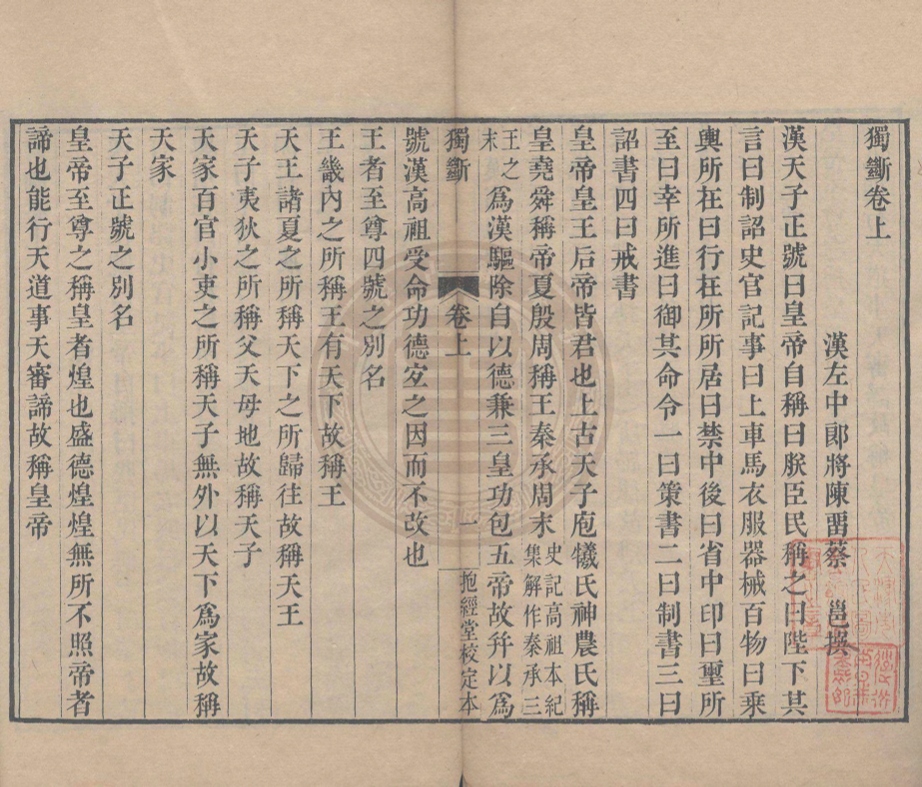 獨斷卷上
漢左中郎將陳畱蔡邕撰
漢天子正號曰皇帝自稱曰朕臣民稱之曰陛下其
言曰制詔史官記事曰上車馬衣服器械百物曰乘
輿所在曰行在所所居曰禁中後曰省中印曰璽所
至曰幸所進曰御其命令一曰策書二曰制書三曰
詔書四曰戒書
皇帝皇王后帝皆君也上古天子庖犧氏神農氏稱
皇堯舜稱帝夏殷周稱王秦承周末史記高祖本紀集解作秦承三
王之末爲漢驅除自以德兼三皇功包五帝故幷以爲
獨斷 卷上 一 抱經堂校定本
號漢高祖受命功德宐之因而不改也
王者至尊四號之別名
王畿內之所稱王有天下故稱王
天王諸夏之所稱天下之所歸往故稱天王
天子夷狄之所稱父天母地故稱天子
天家百官小吏之所稱天子無外以天下爲家故稱
天家
天子正號之別名
皇帝至尊之稱皇者煌也盛德煌煌無所不照帝者
諦也能行天道事天審諦故稱皇帝